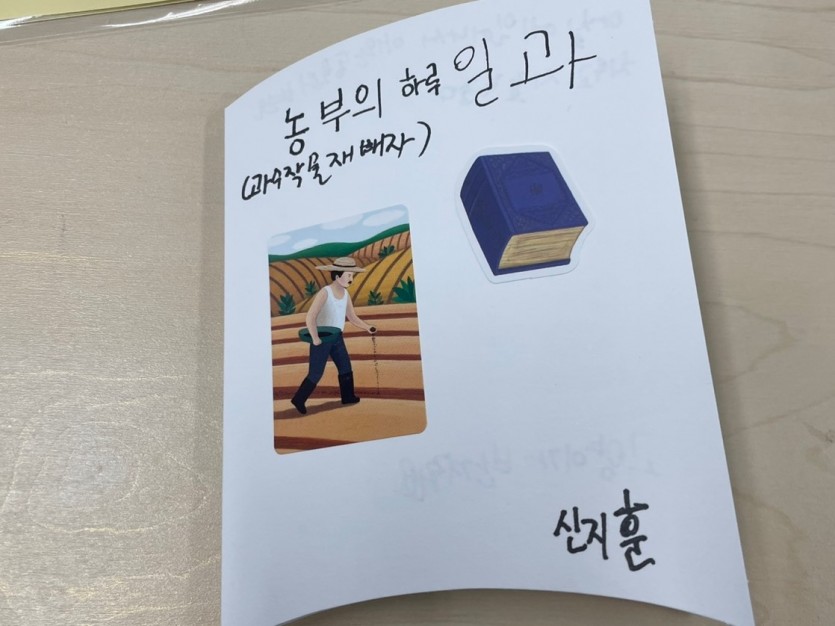 농부의 하루 일과
(과수작물재빼자)
신지훈